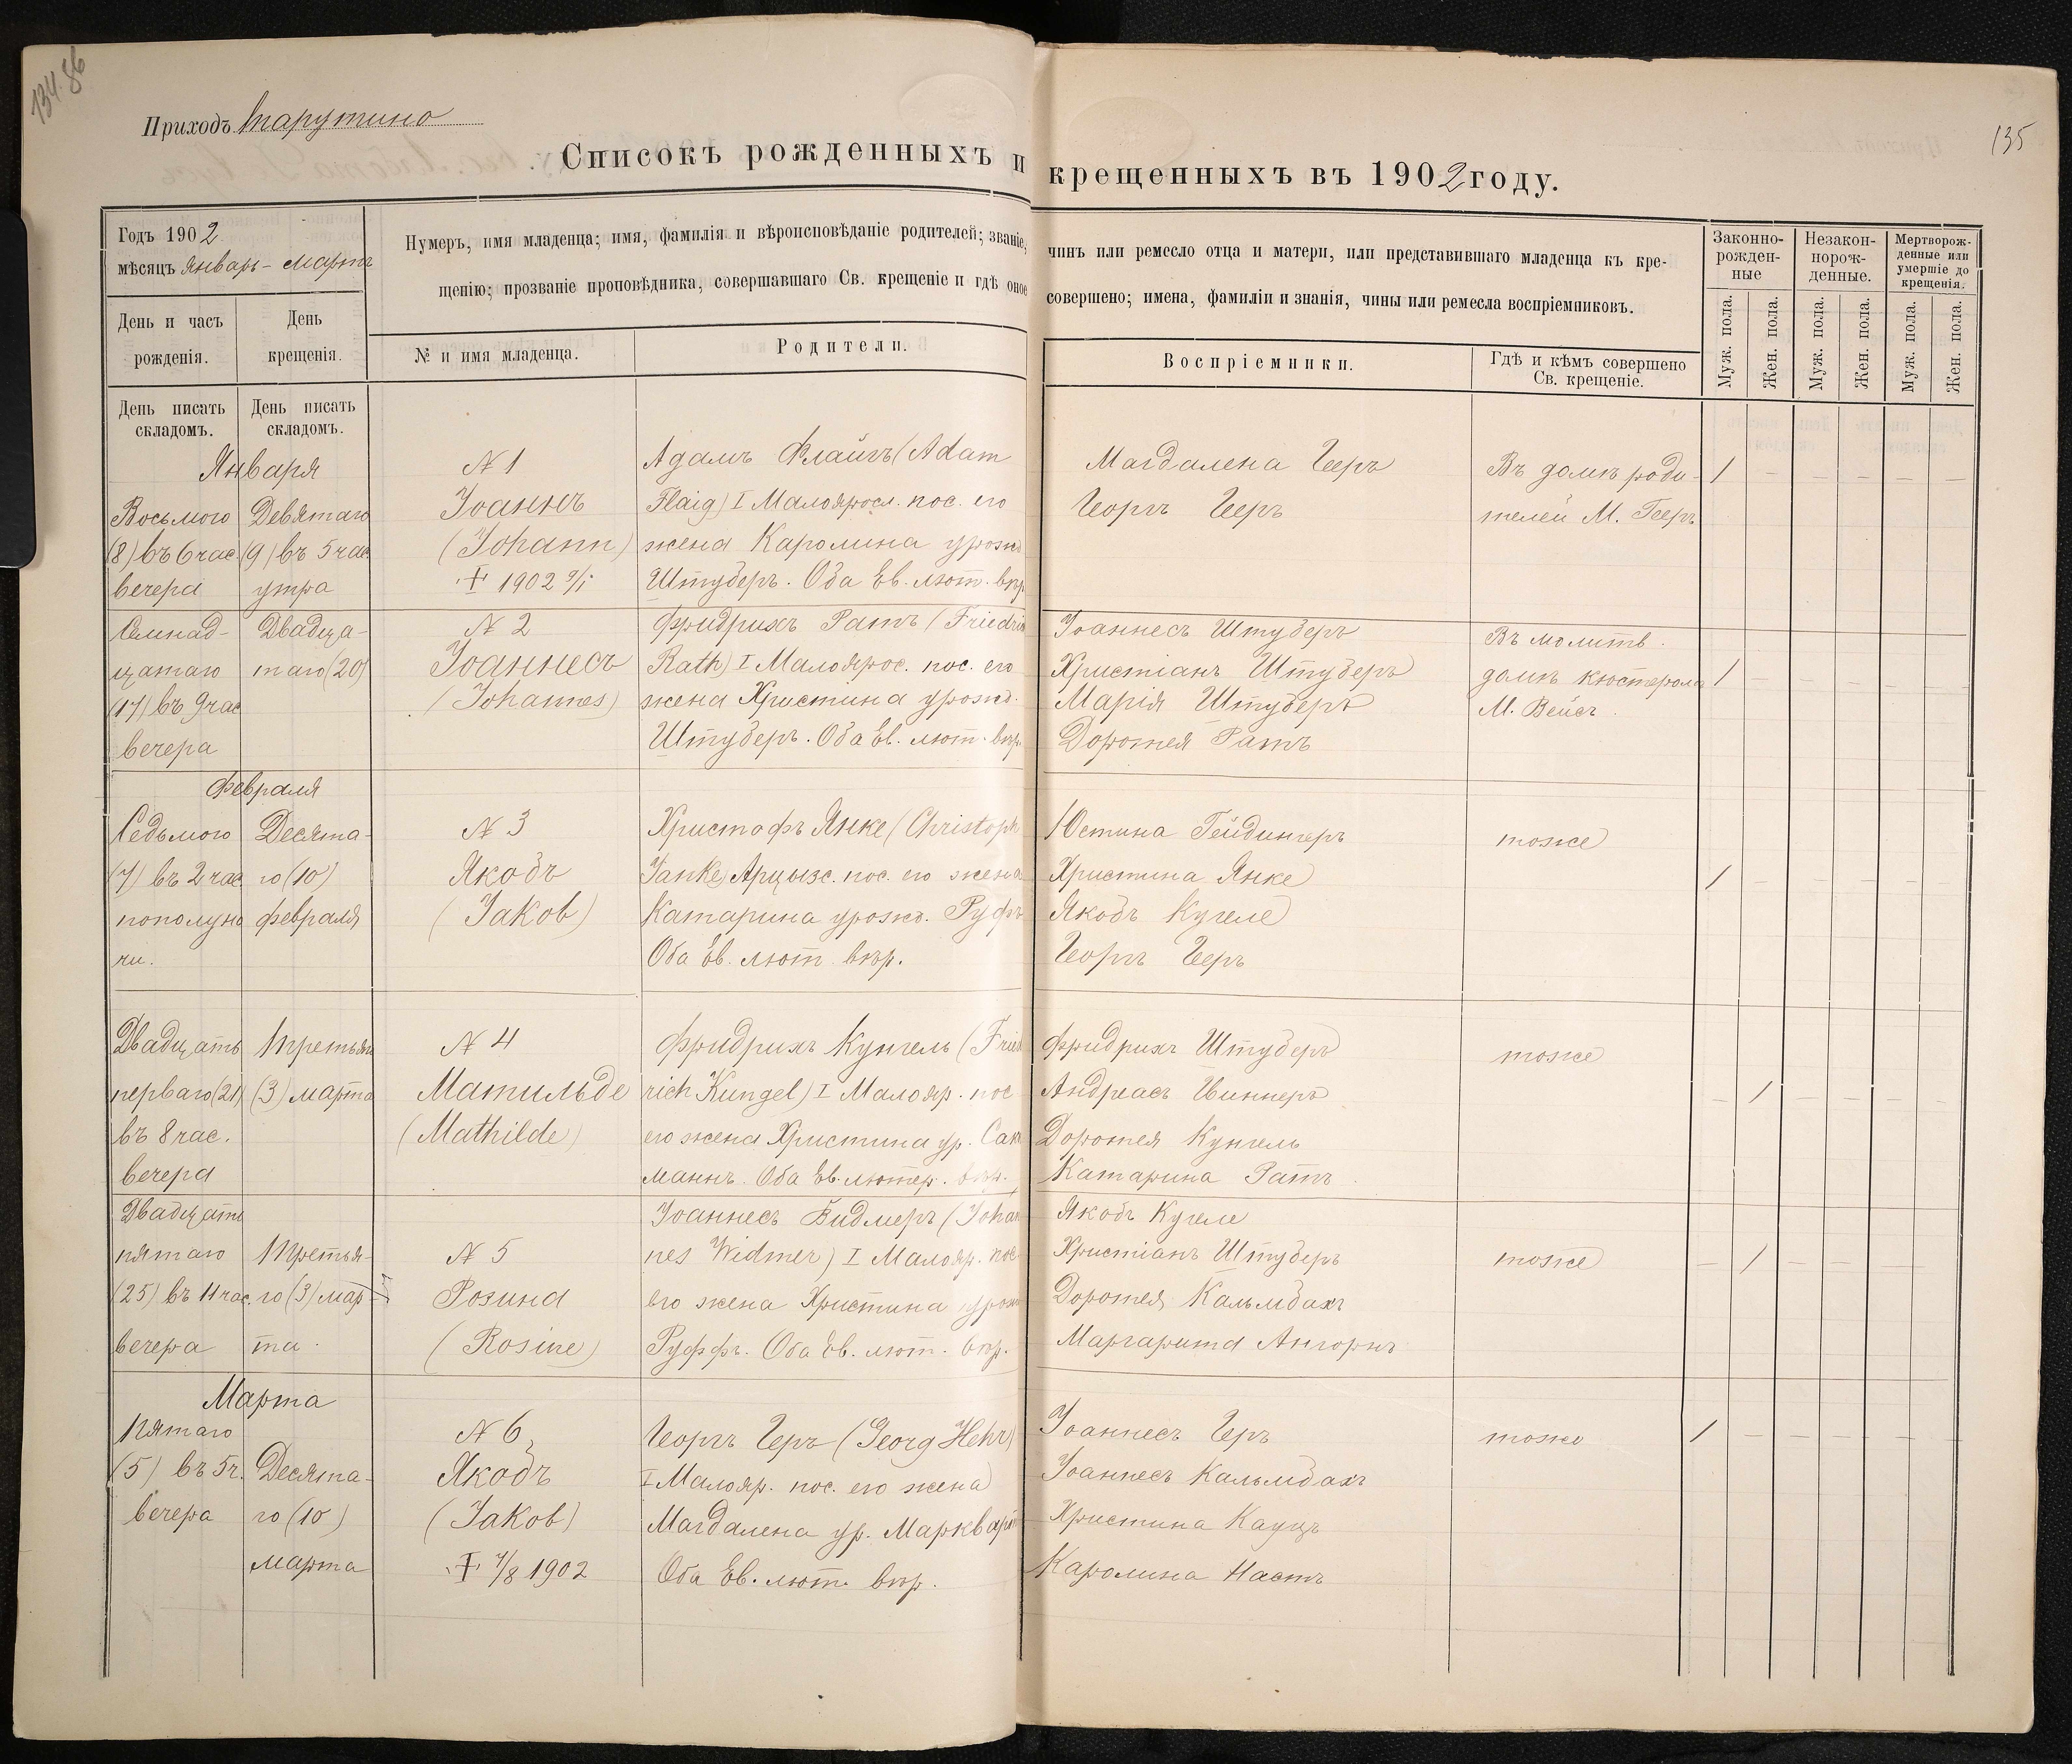 134. 86
135
Приходъ Тарутино
Списокъ рожденныхъ и крещенныхъ въ 1902 году.
Годъ 1902
мѣсяцъ Январь - Мартъ
Нумеръ, имя младенца; имя, фамилія и вѣроисповѣданіе родителей; званіе, чинъ или ремесло отца и матери, или представившаго младенца къ кре-
щенію; прозваніе проповѣдника, совершавшаго Св. крещеніе и гдѣ оное совершено; имена, фамиліи и знанія, чины или ремесла воспріемниковъ.
День и часъ
рожденія.
День
крещенія.
№ и имя младенца.
Родители.
Воспріемники.
Гдѣ и кѣмъ совершено
Св. крещеніе.
Законно-
рожден-
ные
Незакон-
норож-
денные.
Мертворож-
денные или
умершіе до
крещенія.
Муж. пола.
Жен. пола.
Муж. пола.
Жен. пола.
Муж. пола.
Жен. пола.
День писать
складомъ.
День писать
складомъ.
Января
Восьмого
(8) въ 6 час
вечера
Девятаго
(9) въ 5 час.
утра
N 1
Іоаннъ
(Johann)
† 1902 9/I
Адамъ Флайгъ (Adam
Flaig) I Малояросл. пос. его
жена Каролина урожд
Штуберъ. Оба Ев. лют. вѣр
Магдалена Геръ
Георгъ Геръ
Въ домѣ роди-
телей М. Геръ
1 - - - - -
Семнад-
цатаго
(17) въ 9 час
вечера
Двадца-
таго (20)
N 2
Іоаннесъ
(Johannes)
Фридрихъ Ратъ (Friedrich
Rath) I Малоярос. пос. его
жена Христина урожд.
Штуберъ. Оба Ев. лют. вѣр.
Іоаннесъ Штуберъ
Христіанъ Штуберъ
Марія Штуберъ
Доротея Ратъ
Въ молитв.
домѣ кюстеромъ
М. Вейсъ.
1 - - - - -
Февраля
Седьмого
(7) въ 2 час
пополуно
чи.
Десята-
го (10)
февраля
N 3
Якобъ
(Jakob)
Христофъ Янке (Christoph
Janke) Арцызс. пос. его жена
Катарина урожд. Руфъ
Оба Ев. лют. вѣр.
Юстина Гейдингеръ
Христина Янке
Якобъ Кугеле
Георгъ Геръ
тоже
1 - - - - -
Двадцать
перваго (21)
въ 8 час.
вечера
Третьяго
(3) марта
N 4
Матильде
(Mathilde)
Фридрихъ Кунгель (Fried
rich Kungel) I Малояр. пос
его жена Христина ур. Сак
маннъ. Оба Ев. лютер. вѣр.
Фридрихъ Штуберъ
Андреасъ Виннеръ
Доротея Кунгель
Катарина Ратъ
тоже
- 1 - - - -
Двадцать
пятаго
(25) въ 11 час.
вечера
Третья-
го (3) мар
та.
N 5
Розина
(Rosine)
Іоаннесъ Видмеръ (Johan
nes Widmer) I Малояр. пос
его жена Христина урожд
Руффъ. Оба Ев. лют. вѣр.
Якобъ Кугеле
Христіанъ Штуберъ
Доротея Кальмбахъ
Маргарита Ангорнъ
тоже
- 1 - - - -
Марта
Пятаго
(5) въ 5 ч.
вечера
Десята-
го (10)
марта
N 6
Якобъ
(Jakob)
† 7/8 1902
Георгъ Геръ (Georg Hehr)
I Малояр. пос. его жена
Магдалена ур. Марквартъ
Оба Ев. лют. вѣр.
Іоаннесъ Геръ
Іоаннесъ Кальмбахъ
Христина Кауцъ
Каролина Настъ
тоже
1 - - - - -